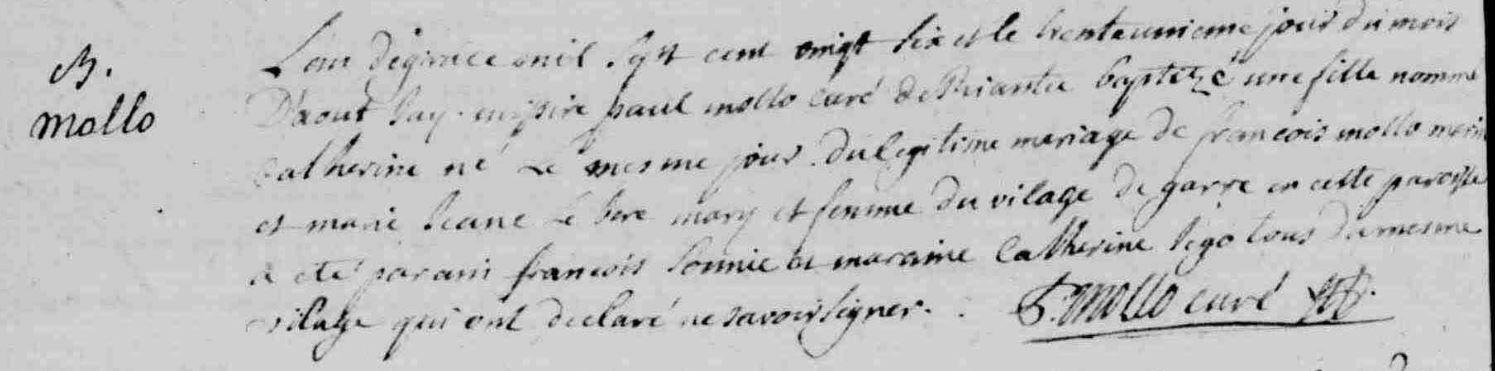 B.
mollo
L'an de grace mil sept cent vingt six et le trentaunieme jour du mois
D'aout Jay paul mollo curé de Riantec baptezé une fille nommé
Catherine né Le mesme jour du legitime mariage de francois mollo
et marie Jeane Le mary et femme du vilage de garre en cette paroisse
a eté parain francois et maraine Catherine tous du mesme
vilage qui ont declaré ne savoir signer.
P. mollo curé